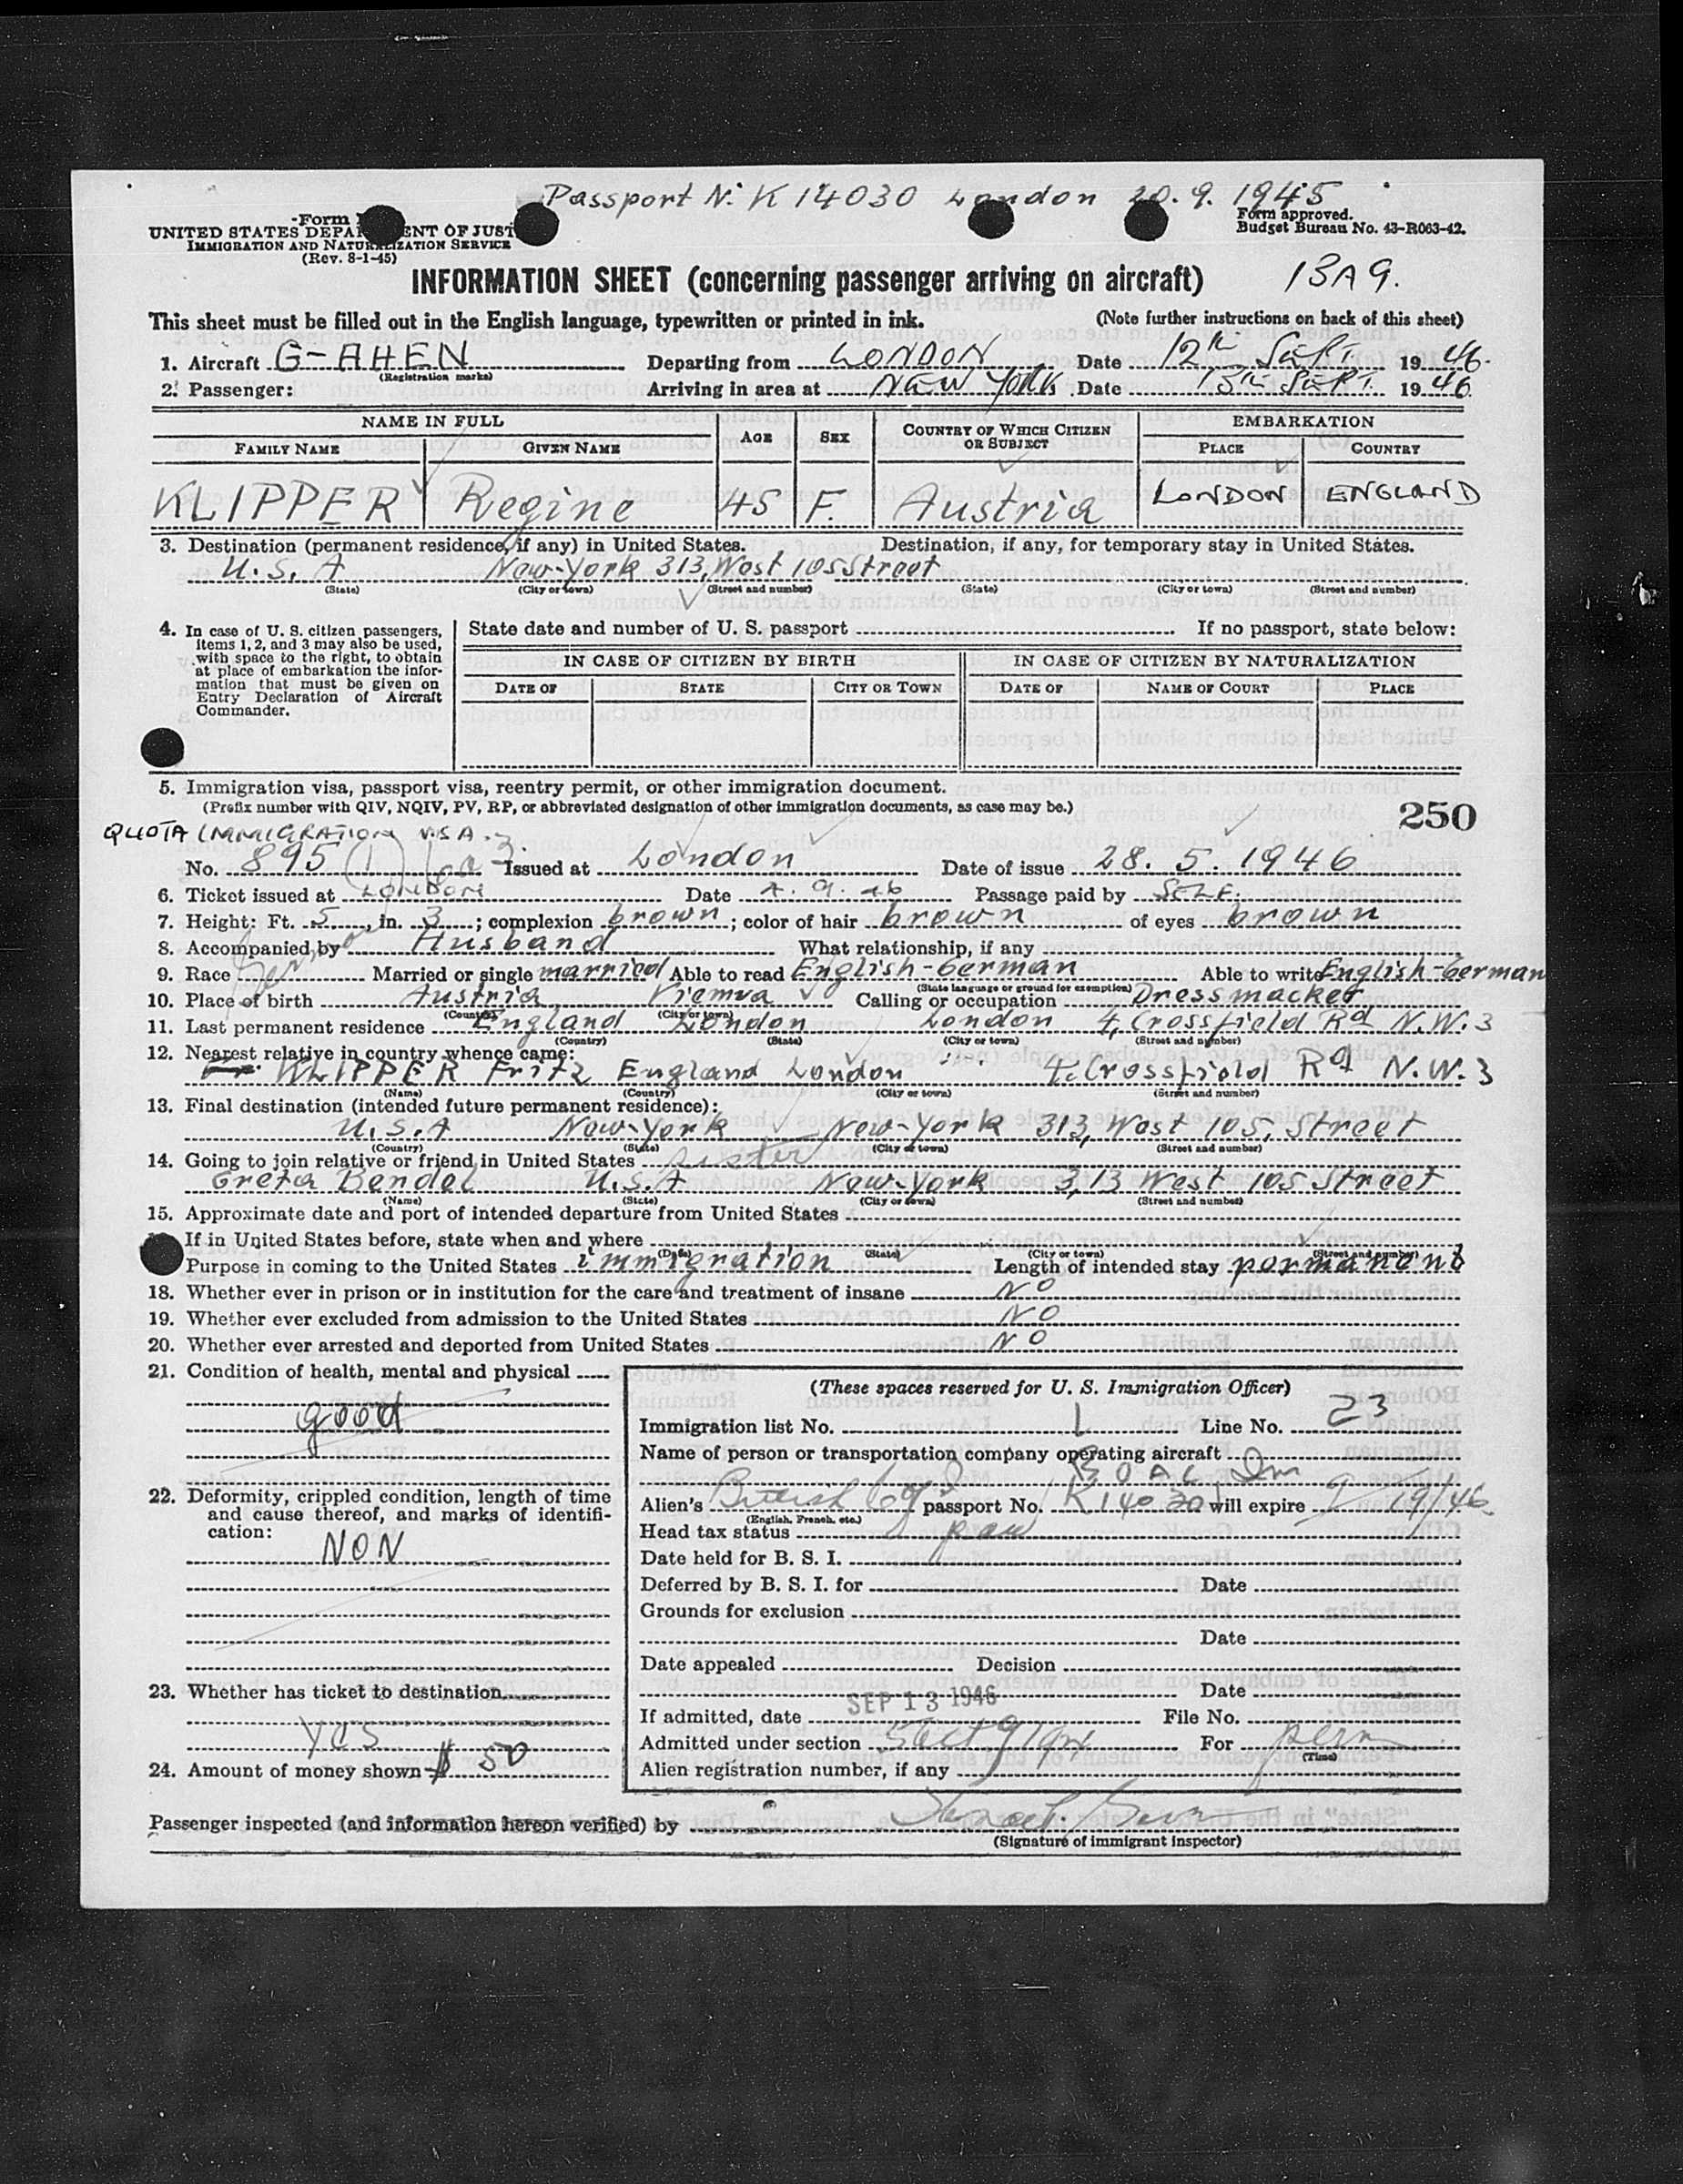 Passport N: K 14030 London 20.9.1945
Form
UNITED STATES DEPA ENT OF JUST
IMMIGRATION AND NATURALIZATION SERVICE
(Rev. 8-1-45)
Form approved.
Budget Bureau No. 43-R063-42.
INFORMATION SHEET (concerning passenger arriving on aircraft) 13A9.
This sheet must be filled out in the English language, typewritten or printed in ink. (Note further instructions on back of this sheet)
1. Aircraft G-AHEN Departing from LONDON Date 12th SEPT. 1946.
(Registration marks)
2. Passenger: Arriving in area at NEW YORK Date 13th SEPT. 1946
NAME IN FULL AGE SEX COUNTRY OF WHICH CITIZEN OR SUBJECT EMBARKATION
FAMILY NAME GIVEN NAME PLACE COUNTRY
KLIPPER Regine 45 F. Austria LONDON ENGLAND
3. Destination (permanent residence, if any) in United States. Destination, if any, for temporary stay in United States.
U.S.A New-York 313, West 105 Street
(State) (City or town) (Street and number) (State) (City or town) (Street and number)
4. In case of U. S. citizen passengers, items 1, 2, and 3 may also be used, with space to the right, to obtain at place of embarkation the information that must be given on Entry Declaration of Aircraft Commander.
State date and number of U. S. passport If no passport, state below:
IN CASE OF CITIZEN BY BIRTH IN CASE OF CITIZEN BY NATURALIZATION
DATE OF STATE CITY OR TOWN DATE OF NAME OF COURT PLACE
5. Immigration visa, passport visa, reentry permit, or other immigration document.
(Prefix number with QIV, NQIV, PV, RP, or abbreviated designation of other immigration documents, as case may be.) 250
QUOTA IMMIGRATION VISA.
No. 895 (1) 6a3 Issued at London Date of issue 28.5.1946
6. Ticket issued at LONDON Date Passage paid by SELF.
7. Height: Ft. 5, in. 3; complexion brown; color of hair brown of eyes brown
8. Accompanied by Husband What relationship, if any
9. Race Married or single married Able to read English-German Able to write English-German
(State language or ground for exemption)
10. Place of birth Austria Vienna Calling or occupation Dressmacker
(Country) (City or town)
11. Last permanent residence England London London 4, Crossfield Rd N.W.3
(Country) (State) (City or town) (Street and number)
12. Nearest relative in country whence came:
KLIPPER Fritz England London 4. Crossfield Rd N.W.3
(Name) (Country) (City or town) (Street and number)
13. Final destination (intended future permanent residence):
U.S.A New-York New-York 313, West 105, Street
(Country) (State) (City or town) (Street and number)
14. Going to join relative or friend in United States sister
Greta Bendel U.S.A New-York 3,13 West 105 Street
(Name) (State) (City or town) (Street and number)
15. Approximate date and port of intended departure from United States
If in United States before, state when and where
(Date) (State) (City or town) (Street and number)
Purpose in coming to the United States immigration Length of intended stay pormanent
18. Whether ever in prison or in institution for the care and treatment of insane NO
19. Whether ever excluded from admission to the United States NO
20. Whether ever arrested and deported from United States NO
21. Condition of health, mental and physical
good
22. Deformity, crippled condition, length of time and cause thereof, and marks of identification:
NON
23. Whether has ticket to destination
yes
24. Amount of money shown $ 50
(These spaces reserved for U. S. Immigration Officer)
Immigration list No. 1 Line No. 23
Name of person or transportation company operating aircraft
BOAC
Alien's British passport No. K14030 will expire 9/19/46
(English, French, etc.)
Head tax status
Date held for B. S. I.
Deferred by B. S. I. for Date
Grounds for exclusion
Date
Date appealed Decision
Date
If admitted, date SEP 13 1946 File No.
Admitted under section For perm
(Time)
Alien registration number, if any
Passenger inspected (and information hereon verified) by
(Signature of immigrant inspector)